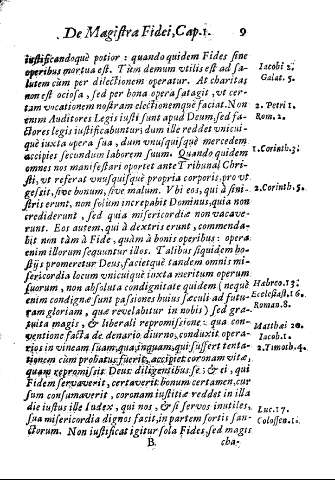 De Magistra Fidei, Cap. 1. 9
iustificandoquè potior: quando quidem Fides sine
operibus mortua est. Tùm demum vtilis est ad sa-
lutem cùm per dilectionem operatur. At charitas
non est ociosa, sed per bona opera satagit, vt cer-
tam vocationem nostram electionemque faciat. Non
enim Auditores Legis iusti sunt apud Deum, sed fa-
ctores legis iustificabuntur; dum ille reddet vnicui-
què iuxta opera sua, dum vnusquisquè mercedem
accipiet secundum laborem suum. Quando quidem
omnes nos manifestari oportet ante Tribunal Chri-
sti, vt referat vnusquisquè propria corporis, pro vt
gessit, siue bonum, siue malum. Vbi eos, qui à sini-
stris erunt, non solùm increpabit Dominus, quia non
crediderunt, sed quia misericordiæ non vacaue-
runt. Eos autem, qui à dextris erunt, commenda-
bit non tàm à Fide, quàm à bonis operibus: opera
enim illorum sequuntur illos. Talibus siquidem ho-
stijs promeretur Deus, facietquè tandem omnis mi-
sericordia locum vnicuique iuxta meritum operum
suorum, non absoluta condignitate quidem (nequè
enim condignæ sunt passiones huius sæculi ad futu-
ram gloriam, quæ reuelabitur in nobis) sed gra-
tuita magis, & liberali repromissione: qua con-
uentione facta de denario diurno, conduxit opera-
rios in vineam suam, quamquam, qui suffert tenta-
tionem cùm probatus fuerit, accipiet coronam vitæ,
quam repromisit Deus diligentibus se; & ei, qui
Fidem seruauerit, certauerit bonum certamen, cur
sum consumauerit, coronam iustitiæ reddet in illa
die iustus ille Iudex, qui nos, & si seruos inutiles,
sua misericordia dignos facit, in partem sortis san-
ctorum. Non iustificat igitur sola Fides, sed magis
B. cha-
Iacobi 2.
Galat. 5.
2. Petri 1.
Rom. 2.
1. Corinth. 3.
2. Corinth. 5.
Hebreo. 13.
Ecclesiast. 16.
Roman. 8.
Matthæi 20.
Iacob. 1.
2. Timoth. 4.
Luc. 17.
Colossen. 1.